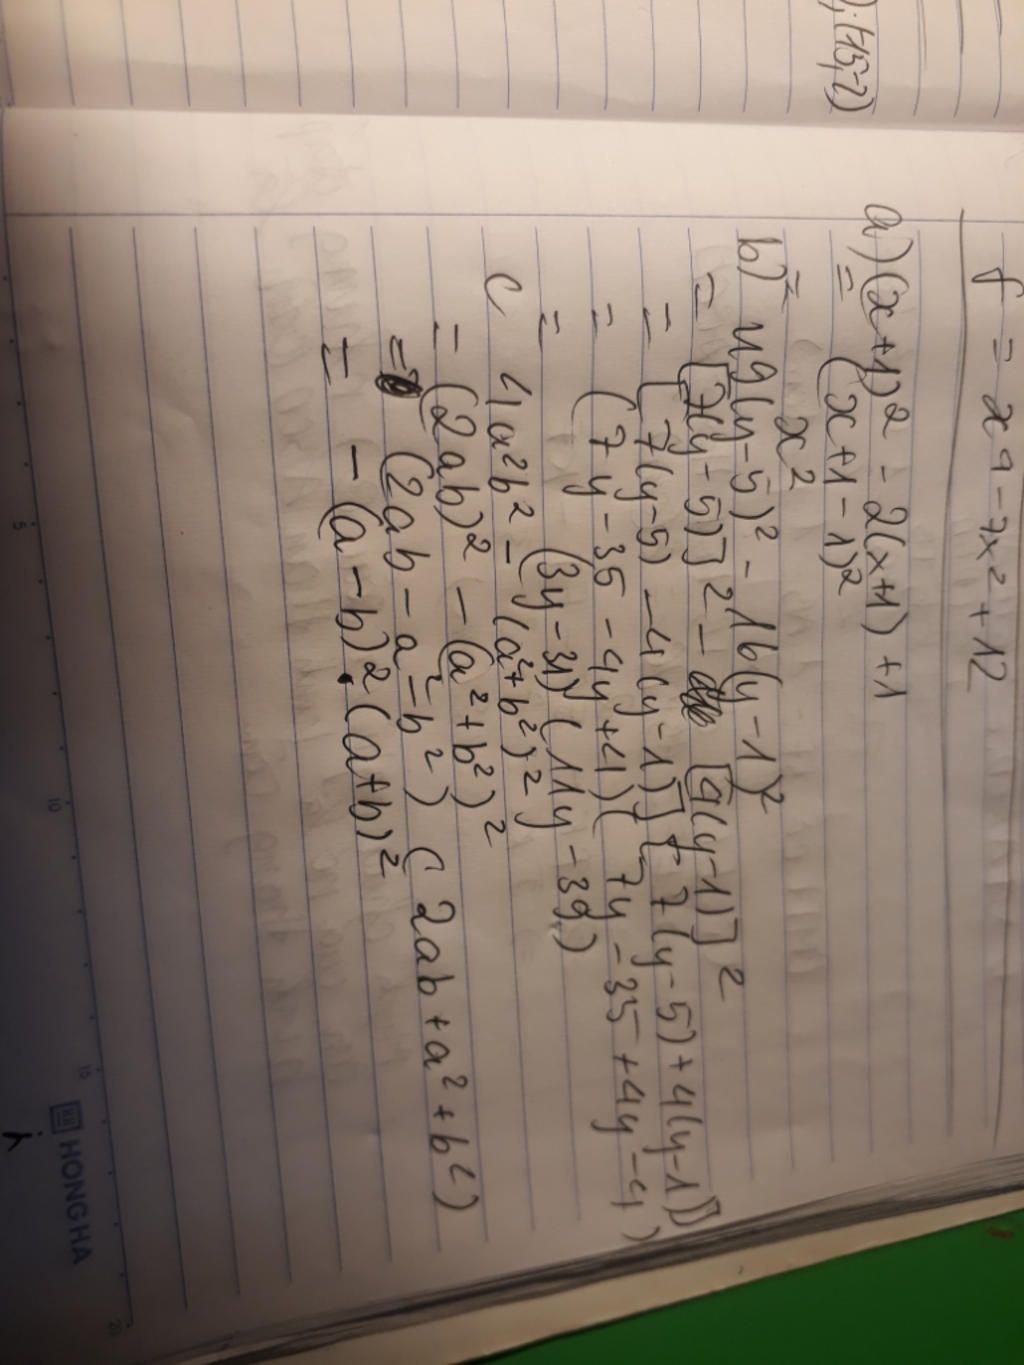 ). (-15,-2)
f = x⁴ - 7x² + 12
a) (x+1)² - 2(x+1) + 1
= (x+1-1)²
= x²
b) 49(y-5)² - 16(y-1)²
= [7(y-5)]² - [4(y-1)]²
= [7(y-5) - 4(y-1)][7(y-5) + 4(y-1)]
= (7y - 35 - 4y + 4)(7y - 35 + 4y - 4)
= (3y - 31)(11y - 39)
c 4a²b² - (a²+b²)²
= (2ab)² - (a²+b²)²
= (2ab - a² - b²)(2ab + a² + b²)
= -(a-b)².(a+b)²
5 10 15 20
HONG HA